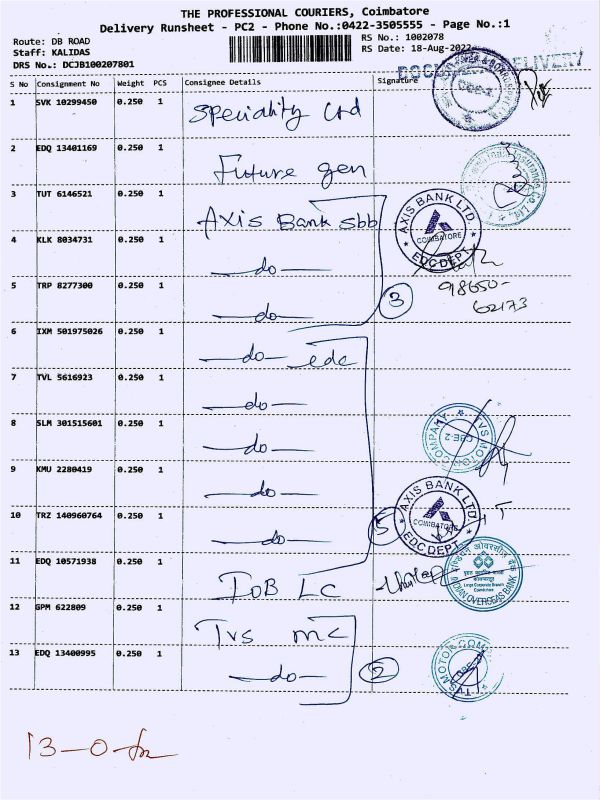 THE PROFESSIONAL COURIERS, Coimbatore
Delivery Runsheet - PC2 - Phone No.:0422-3505555 - Page No.:1
Route: DB ROAD
RS No.: 1002078
Staff: KALIDAS
RS Date: 18-Aug-2022
DRS No.: DCJB100207801
S No Consignment No Weight PCS Consignee Details Signature
1 SVK 10299450 0.250 1 Speciality Ltd
2 EDQ 13401169 0.250 1 Future gen
3 TUT 6146521 0.250 1 Axis Bank sbb
AXIS BANK LTD.
COIMBATORE
EDC DEPT
4 KLK 8034731 0.250 1 —do—
5 TRP 8277300 0.250 1 —do— 3
98650-
62173
6 IXM 501975026 0.250 1 —do— edc
7 TVL 5616923 0.250 1 —do—
8 SLM 301515601 0.250 1 —do—
TVS MOTOR COMPANY
CBE-2
9 KMU 2280419 0.250 1 —do—
10 TRZ 140960764 0.250 1 —do— 5
AXIS BANK LTD.
COIMBATORE
EDC DEPT
11 EDQ 10571938 0.250 1 IOB LC
इण्डियन ओवरसीज़ बैंक
Large Corporate Branch
Coimbatore
INDIAN OVERSEAS BANK
12 GPM 622809 0.250 1 Tvs mc
13 EDQ 13400995 0.250 1 —do— 2
TVS MOTOR COM